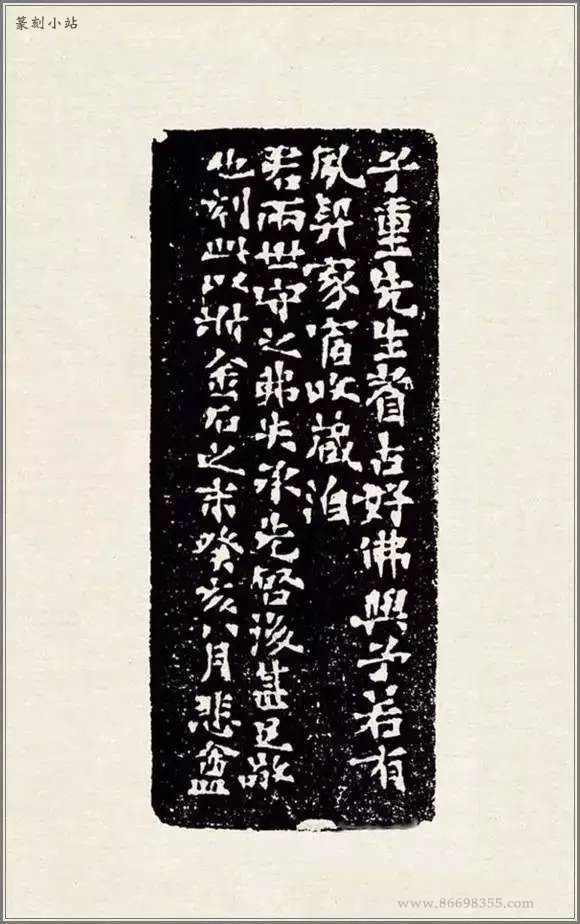 篆刻小站
子重先生耆古好佛與予若有
夙契家富收藏洎
君兩世守之弗失承先啓後甚足敬
也刻此以附金石之末癸亥八月悲盦
www.86698355.com